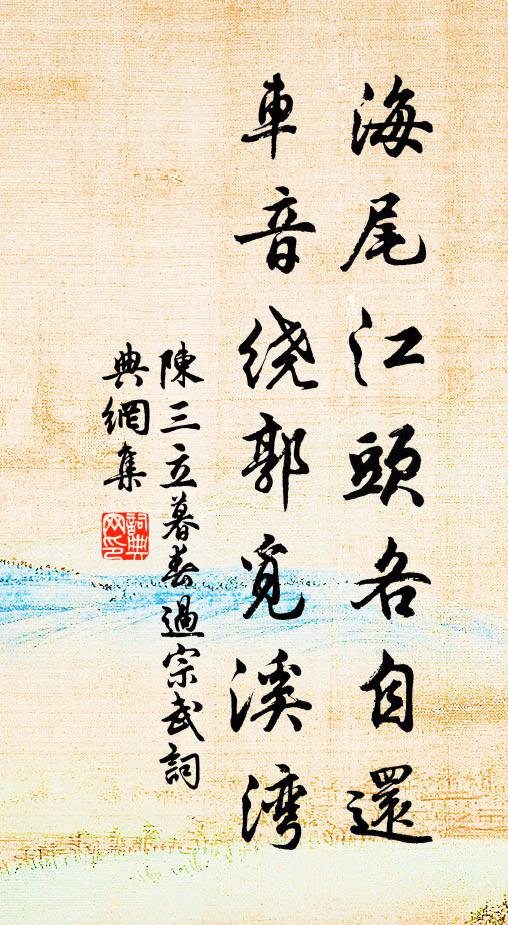 海尾江頭各自還
車音绕郭覓溪湾
陳三立暮春過宗武詞
典網集
詞典
网印